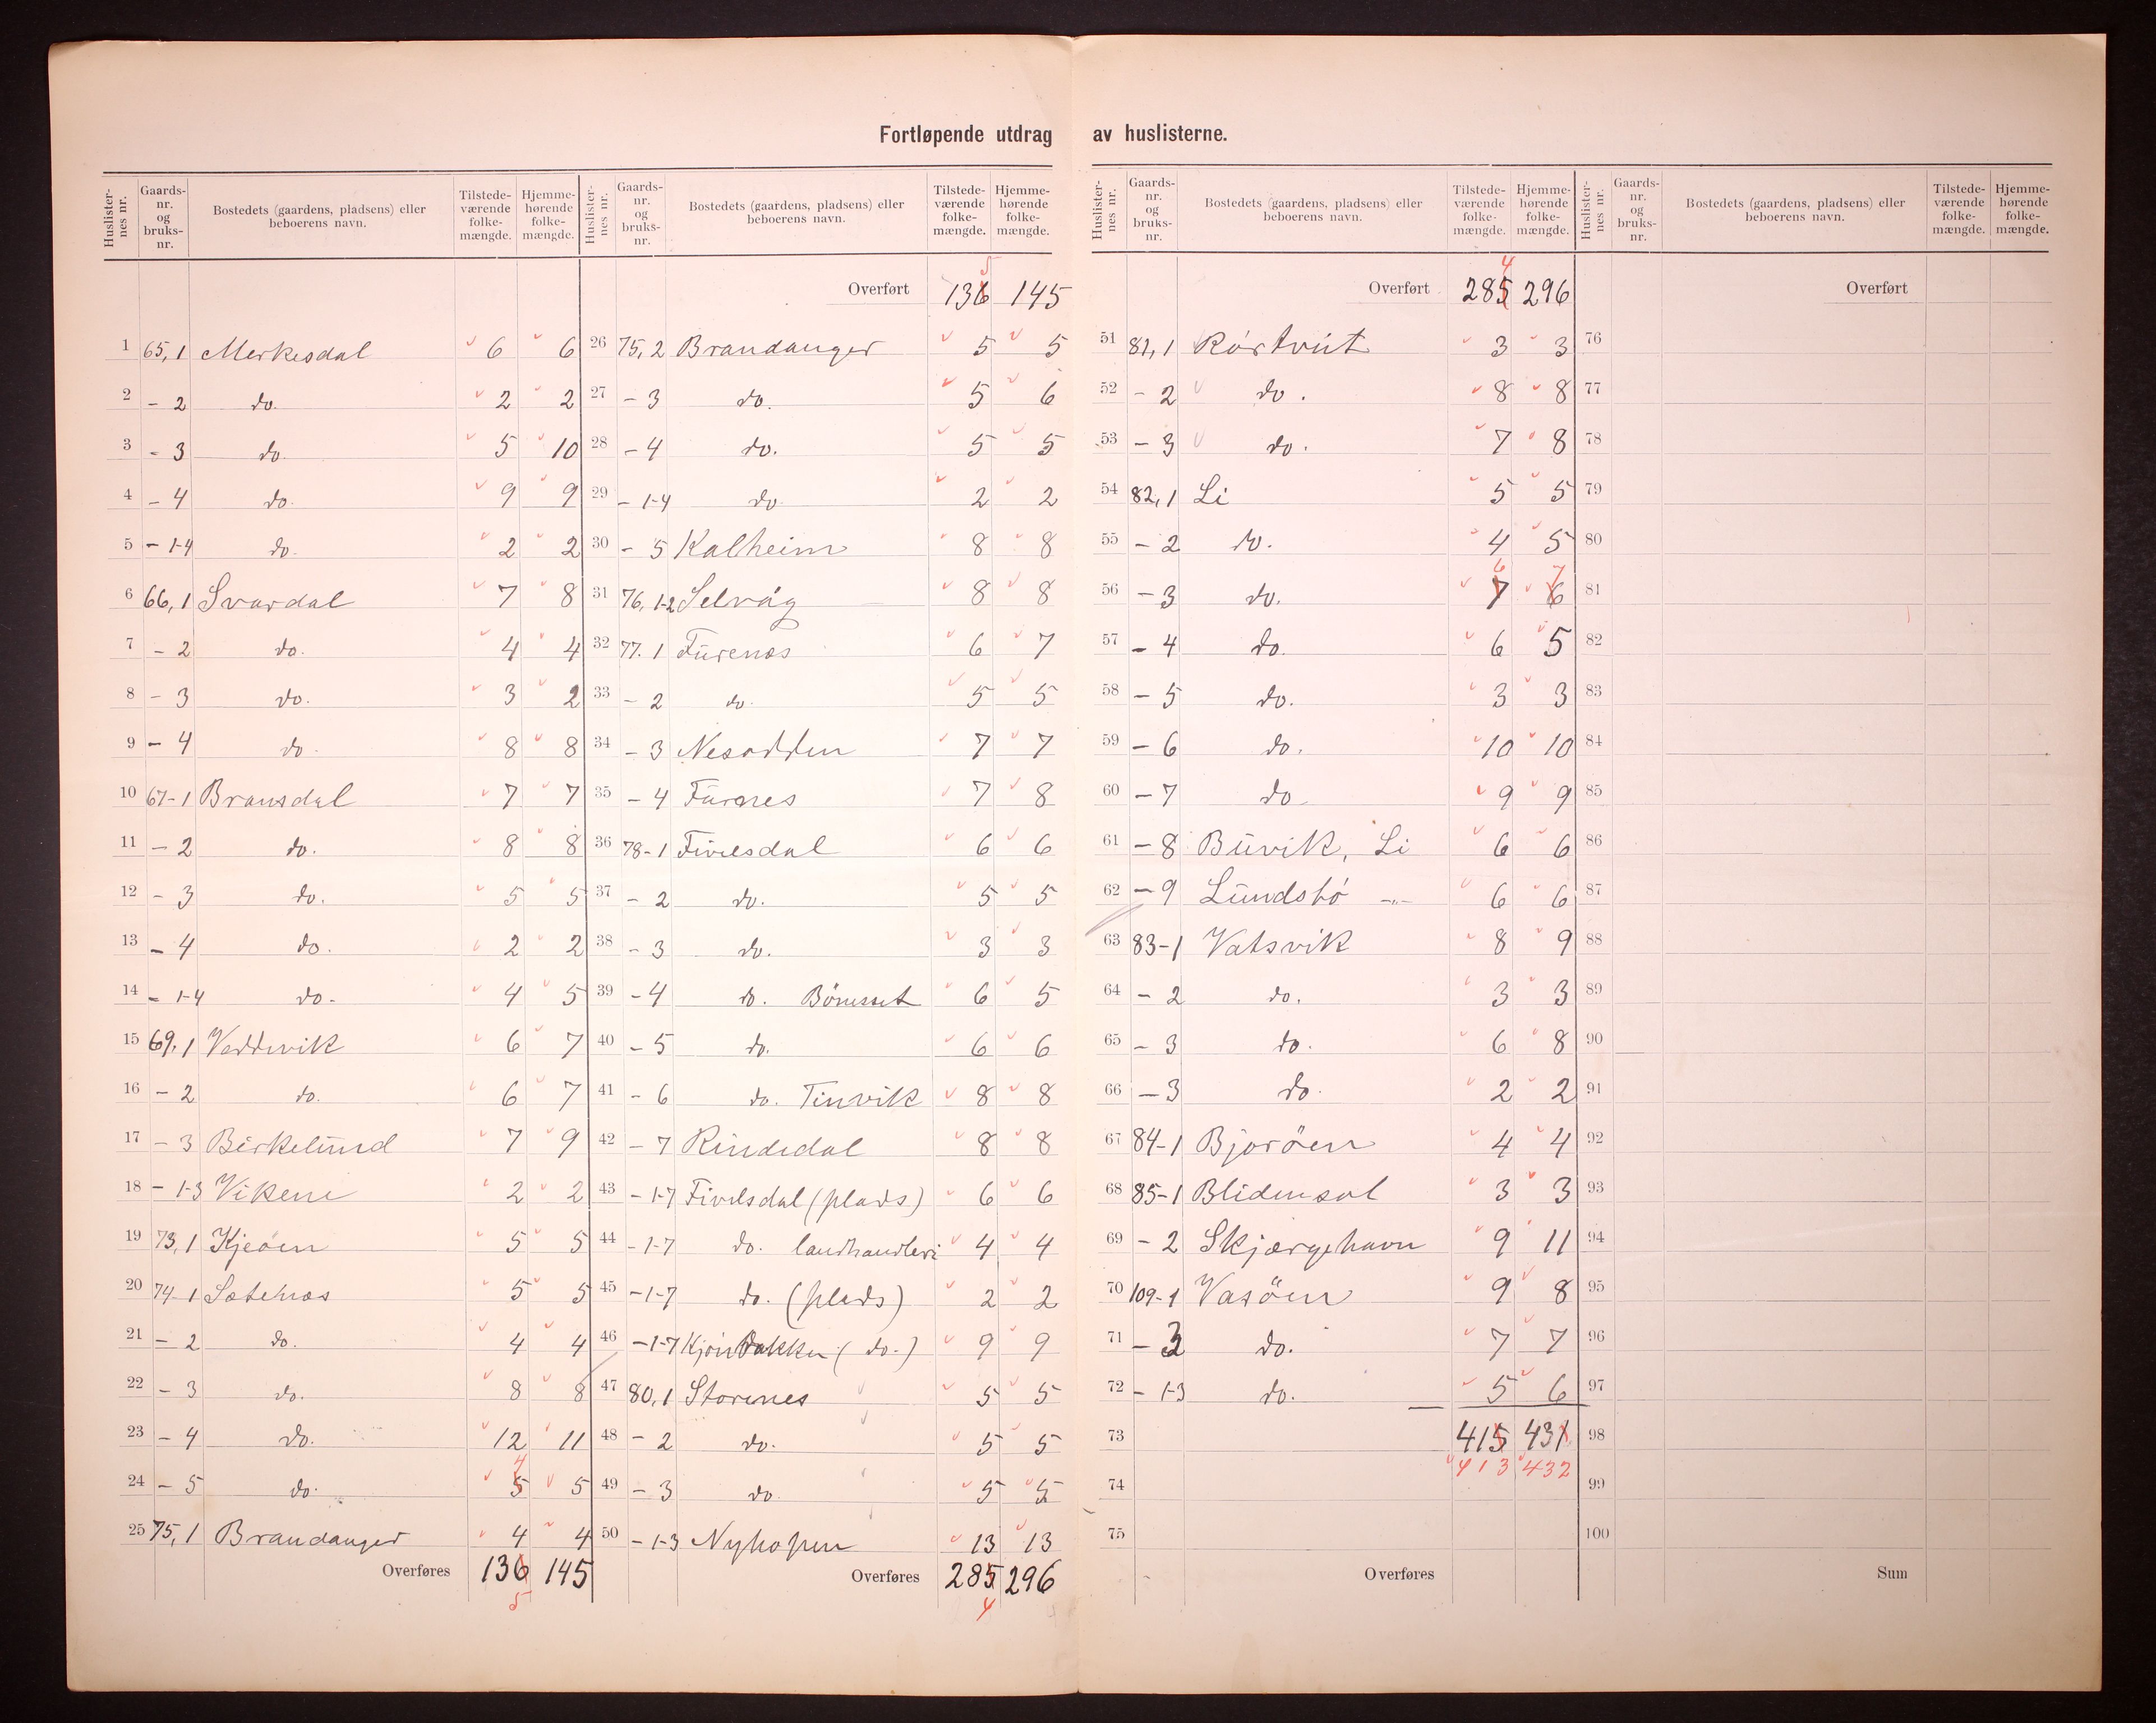 Fortløpende utdrag av huslisterne.
Huslisternes nr. Gaards-nr. og bruks-nr. Bostedets (gaardens, pladsens) eller beboerens navn. Tilstede-værende folke-mængde. Hjemme-hørende folke-mængde.
1 65,1 Merkesdal 6 6
2 - 2 do. 2 2
3 - 3 do. 5 10
4 - 4 do. 9 9
5 - 1-4 do. 2 2
6 66,1 Svardal 7 8
7 - 2 do. 4 4
8 - 3 do. 3 2
9 - 4 do. 8 8
10 67-1 Bransdal 7 7
11 - 2 do. 8 8
12 - 3 do. 5 5
13 - 4 do. 2 2
14 - 1-4 do. 4 5
15 69.1 Veddvik 6 7
16 - 2 do. 6 7
17 - 3 Birkelund 7 9
18 - 1-3 Vikene 2 2
19 73,1 Kjeøen 5 5
20 74-1 Sætenæs 5 5
21 - 2 do. 4 4
22 - 3 do. 8 8
23 - 4 do. 12 11
24 - 5 do. 5 4 5
25 75,1 Brandanger 4 4
Overføres 136 5 145
Huslisternes nr. Gaards-nr. og bruks-nr. Bostedets (gaardens, pladsens) eller beboerens navn. Tilstede-værende folke-mængde. Hjemme-hørende folke-mængde.
Overført 136 5 145
26 75,2 Brandanger 5 5
27 - 3 do. 5 6
28 - 4 do. 5 5
29 - 1-4 do. 2 2
30 - 5 Kalheim 8 8
31 76,1-2 Selvåg 8 8
32 77.1 Furenæs 6 7
33 - 2 do. 5 5
34 - 3 Nesodden 7 7
35 - 4 Furnes 7 8
36 78-1 Fivelsdal 6 6
37 - 2 do. 5 5
38 - 3 do. 3 3
39 - 4 do. 6 5
40 - 5 do. 6 6
41 - 6 do. Tinvik 8 8
42 - 7 Rindedal 8 8
43 - 1-7 Fivelsdal (plads) 6 6
44 - 1-7 do. landhandleri 4 4
45 - 1-7 do. (plads) 2 2
46 - 1-7 (do.) 9 9
47 80,1 Storenes 5 5
48 - 2 do. 5 5
49 - 3 do. 5 5
50 - 1-3 Nyhopen 13 13
Overføres 285 4 296
Huslisternes nr. Gaards-nr. og bruks-nr. Bostedets (gaardens, pladsens) eller beboerens navn. Tilstede-værende folke-mængde. Hjemme-hørende folke-mængde.
Overført 285 4 296
51 81,1 Rørtvut 3 3
52 - 2 do. 8 8
53 - 3 do. 7 8
54 82,1 Li 5 5
55 - 2 do. 4 5
56 - 3 do. 7 6 6 7
57 - 4 do. 6 5
58 - 5 do. 3 3
59 - 6 do. 10 10
60 - 7 do 9 9
61 - 8 Buvik, Li 6 6
62 - 9 Lundsbø -"- 6 6
63 83-1 Vatsvik 8 9
64 - 2 do. 3 3
65 - 3 do. 6 8
66 - 3 do. 2 2
67 84-1 Bjorøen 4 4
68 85-1 Blidensol 3 3
69 - 2 Skjærgehavn 9 11
70 109-1 Vasøen 9 8
71 - 3 do. 7 7
72 - 1-3 do. 5 6
73 415 431
74 413 432
75
Overføres
Huslisternes nr. Gaards-nr. og bruks-nr. Bostedets (gaardens, pladsens) eller beboerens navn. Tilstede-værende folke-mængde. Hjemme-hørende folke-mængde.
Overført
76
77
78
79
80
81
82
83
84
85
86
87
88
89
90
91
92
93
94
95
96
97
98
99
100
Sum